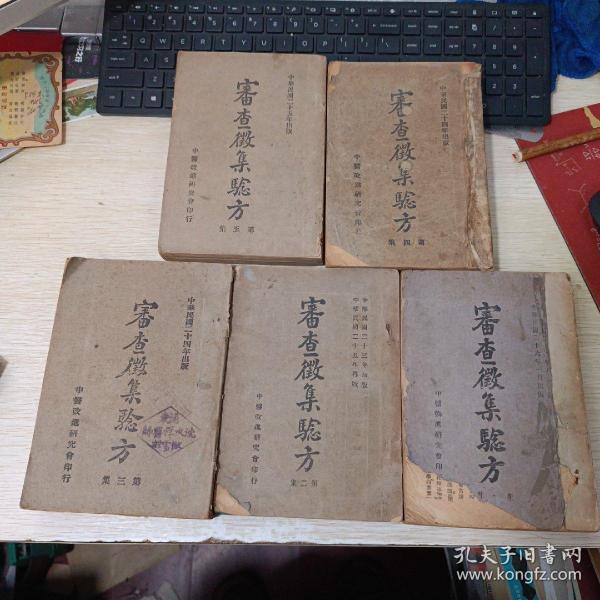 中華民國二十五年出版
審查徵集驗方
第五集
中醫改進研究會印行
中華民國二十四年出版
審查徵集驗方
第四集
中醫改進研究會印行
中華民國二十四年出版
審查徵集驗方
第三集
中醫改進研究會印行
中華民國二十三年出版
中華民國二十五年再版
審查徵集驗方
第二集
中醫改進研究會印行
審查徵集驗方
中醫改進研究會印
孔夫子旧书网
www.kongfz.com